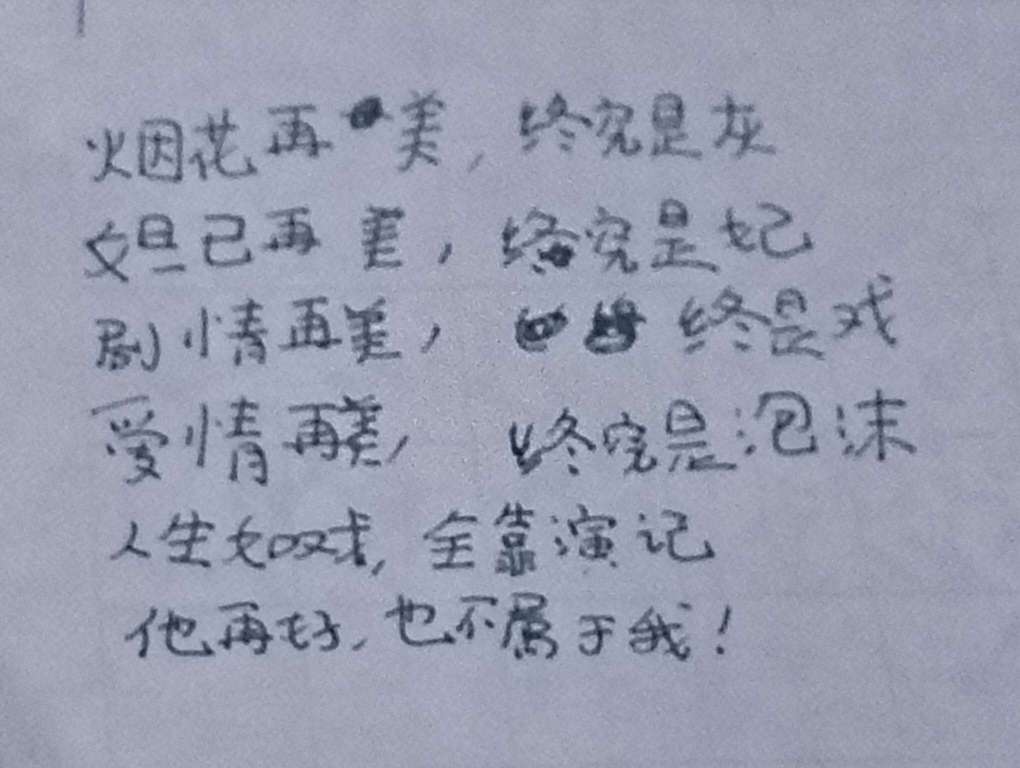 烟花再美,终究是灰
妲己再美,终究是妃
剧情再美,终是戏
爱情再美,终究是泡沫
人生如戏,全靠演记
他再好,也不属于我!